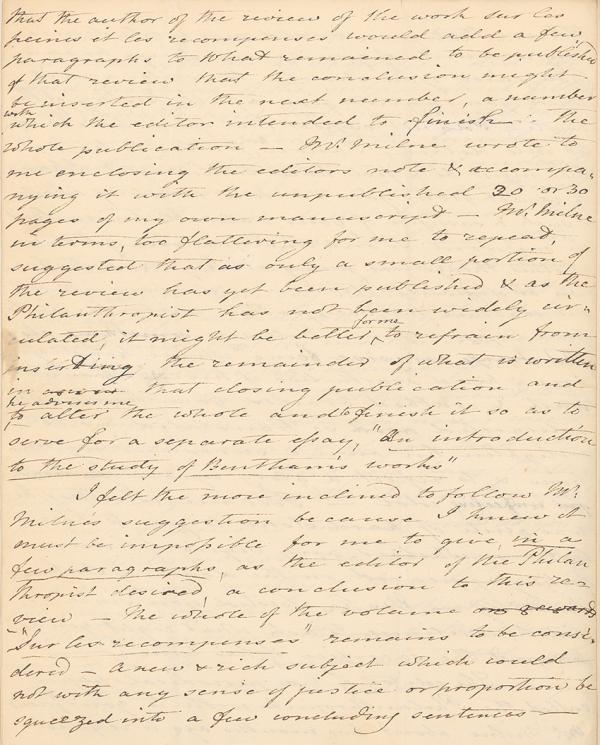 that the author of the review of the work sur les
peines et les recompenses would add a few
paragraphs to what remained to be published
of that review that the conclusion might
be inserted in the next number, a number
with
which the editor intended to finish the
whole publication — Mr. Milne wrote to
me enclosing the editors note & accompa-
nying it with the unpublished 20 or 30
pages of my own manuscript — Mr. Milne
in terms, too flattering for me to repeat,
suggested that as only a small portion of
the review has yet been published & as the
Philanthropist has not been widely cir-
culated, it might be better, to refrain from
for me
inserting the remainder of what is written
in that closing publication and
he advises me
to alter the whole and to finish it so as to
serve for a separate essay, "An introduction
to the study of Bentham's works"
I felt the more inclined to follow Mr.
Milne's suggestion because I knew it
must be impossible for me to give in a
few paragraphs, as the editor of the Philan
thropist desired, a conclusion to this re-
view — The whole of the volume
"Sur les recompenses" remains to be consi-
dered — a new & rich subject which could
not with any sense of justice or proportion be
squeezed into a few concluding sentences —